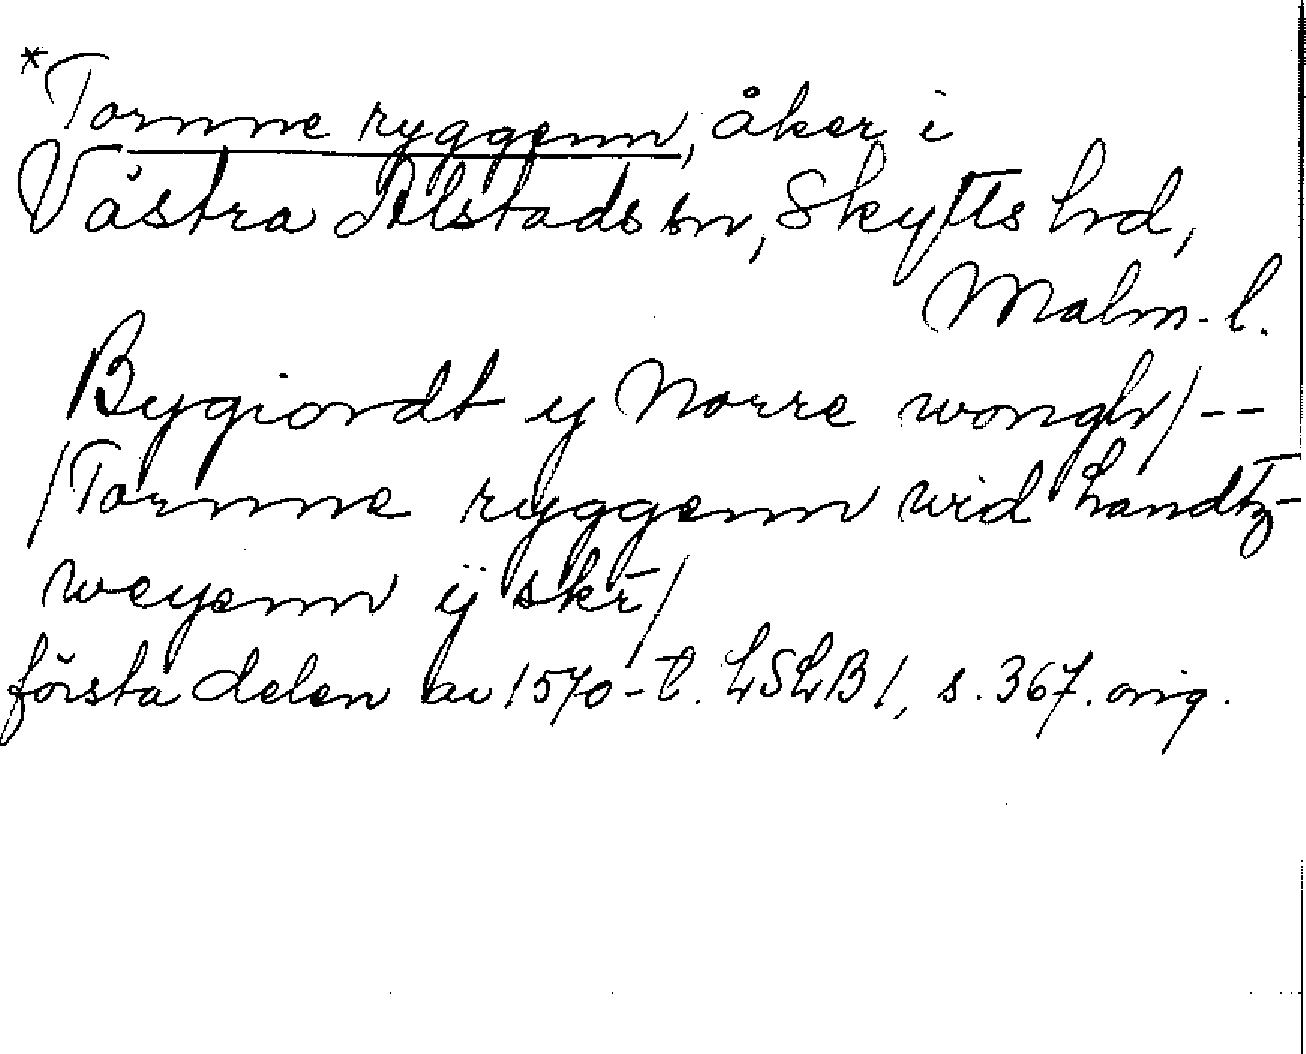 *Tornne ryggenn, åker i
Västra Alstads sn, Skytts hrd,
Malm. l.
Bygiordt y Norre wongh/--
/Tornne ryggenn wid handtz-
weyenn ÿ skr/
första delen av 1570-t. LSLB 1, s. 367. orig.